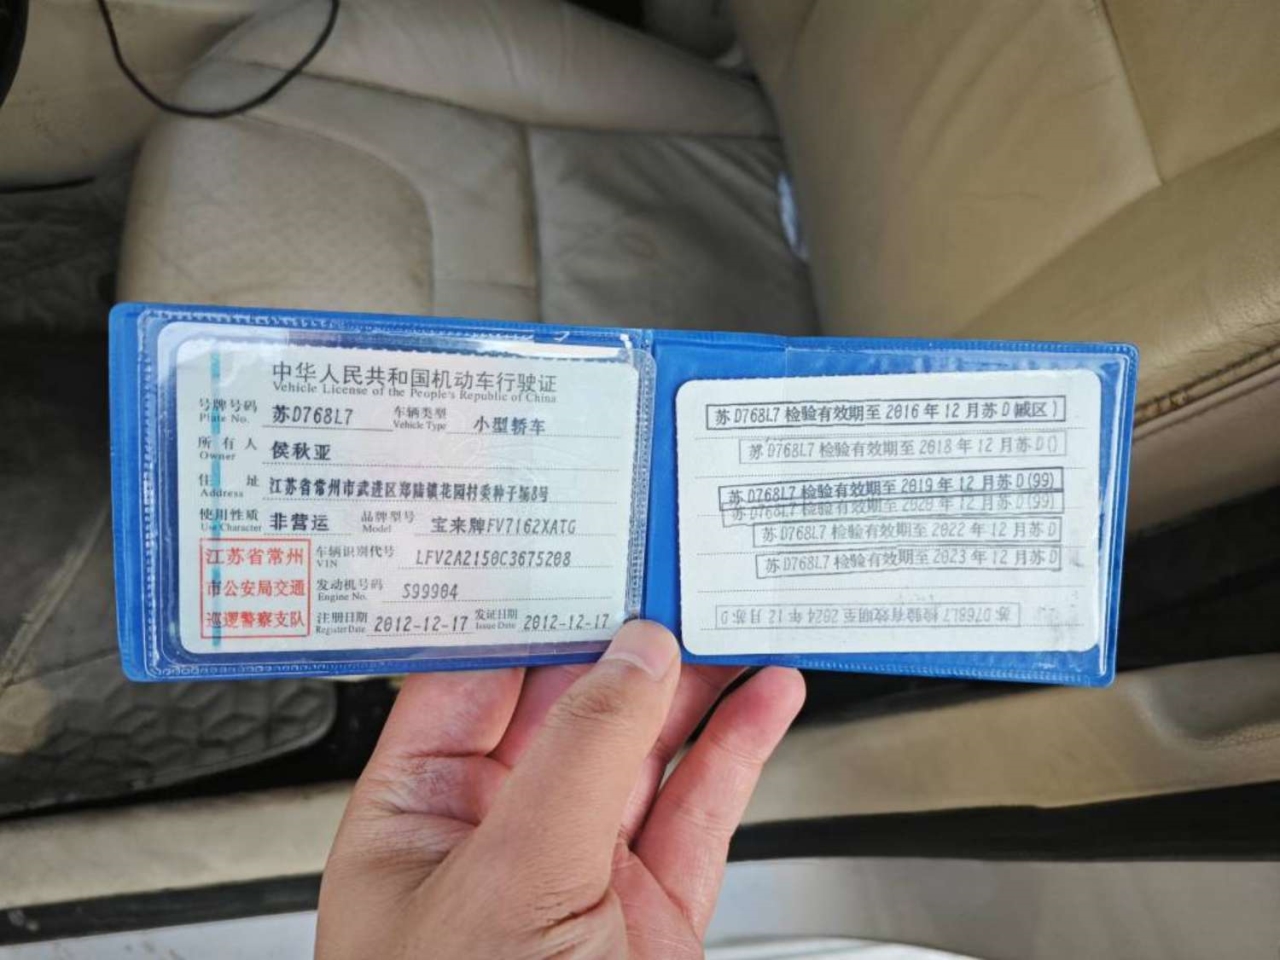 中华人民共和国机动车行驶证
Vehicle License of the People's Republic of China
号牌号码 苏D768L7 车辆类型 小型轿车
Plate No. Vehicle Type
所有人 侯秋亚
Owner
住址 江苏省常州市武进区郑陆镇花园村委种子场8号
Address
使用性质 非营运 品牌型号 宝来牌FV7162XATG
Use Character Model
江苏省常州
市公安局交通
巡逻警察支队
车辆识别代号 LFV2A2150C3675208
VIN
发动机号码 S99904
Engine No.
注册日期 2012-12-17 发证日期 2012-12-17
Register Date Issue Date
苏D768L7检验有效期至2016年12月苏D(城区)
苏D768L7检验有效期至2018年12月苏D()
苏D768L7检验有效期至2019年12月苏D(99)
苏D768L7检验有效期至2020年12月苏D(99)
苏D768L7检验有效期至2022年12月苏D
苏D768L7检验有效期至2023年12月苏D
苏D768L7检验有效期至2024年12月苏D